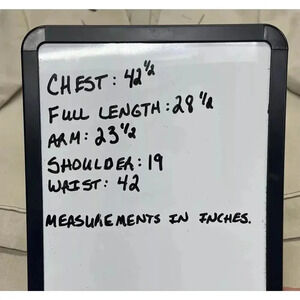 CHEST: 42 1/2
FULL LENGTH: 28 1/2
ARM: 23 1/2
SHOULDER: 19
WAIST: 42
MEASUREMENTS IN INCHES.